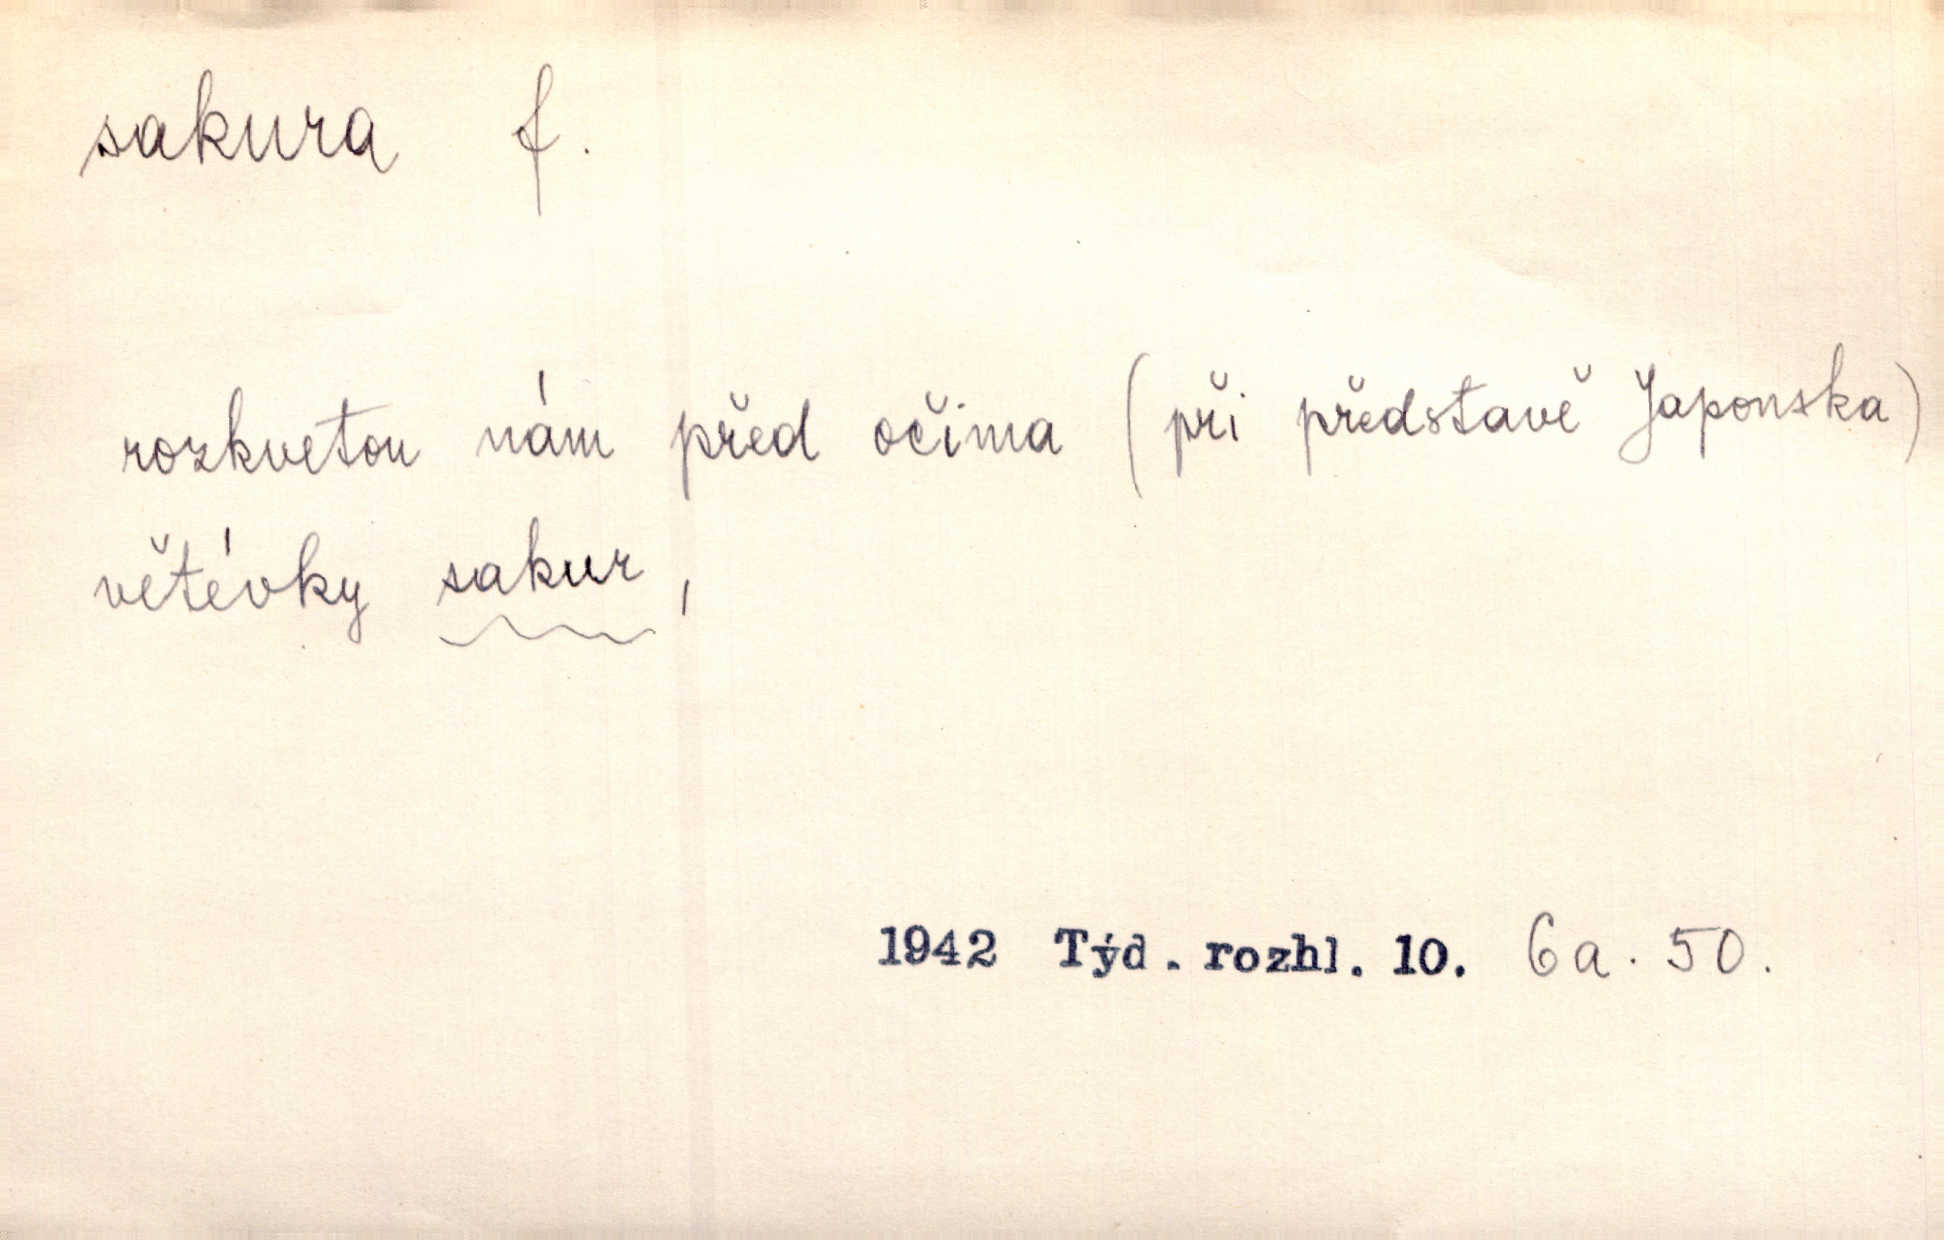 sakura f.
rozkvetou nám před očima (při představě Japonska)
větévky sakur,
1942 Týd. rozhl. 10. 6a. 50.